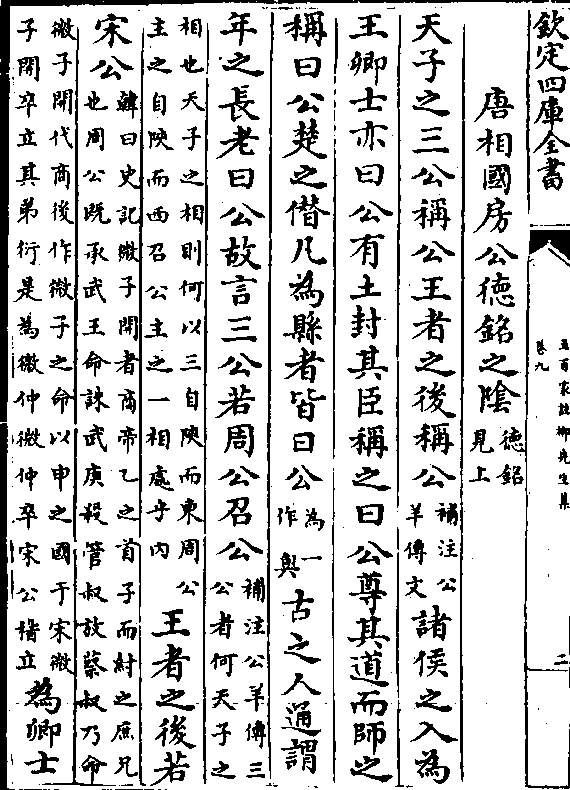 欽定四庫全書
五百家註柳先生集
卷九
二
唐相國房公德銘之陰德銘
見上
天子之三公稱公王者之後稱公補注公
羊傳文諸侯之入為
王卿士亦曰公有土封其臣稱之曰公尊其道而師之
稱曰公楚之僭凡為縣者皆曰公為一
作與古之人通謂
年之長老曰公故言三公若周公召公補注公羊傳三
公者何天子之
相也天子之相則何以三自陝而東周公
主之自陝而西召公主之一相處乎内王者之後若
宋公韓曰史記微子開者商帝乙之首子而紂之庶兄
也周公既承武王命誅武庚殺管叔放蔡叔乃命
微子開代商後作微子之命以申之國于宋微
子開卒立其弟衍是為微仲微仲卒宋公稽立為卿士